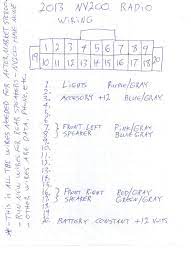 2013 NV200 RADIO
WIRING
1 2 3 4 5 6 7 8 9
19 20
10 11 12 13 14 15 16 17 18
1
LIGHTS PURPLE/GRAY
2 ACCESORY +12 BLUE/GRAY
FRONT LEFT PINK/GRAY
SPEAKER BLUE GRAY
FRONT RIGHT RED/GRAY
SPEAKER GREEN/GRAY
BATTERY CONSTANT +12 VOLTS
* - THIS IS ALL THE WIRES NEEDED FOR AFTERMARKET STEREO
- RUN NEW WIRES FOR REAR SPEAKERS - NV200 HAVE NONE
- OTHER WIRES ARE DATA, PHONE, ETC.